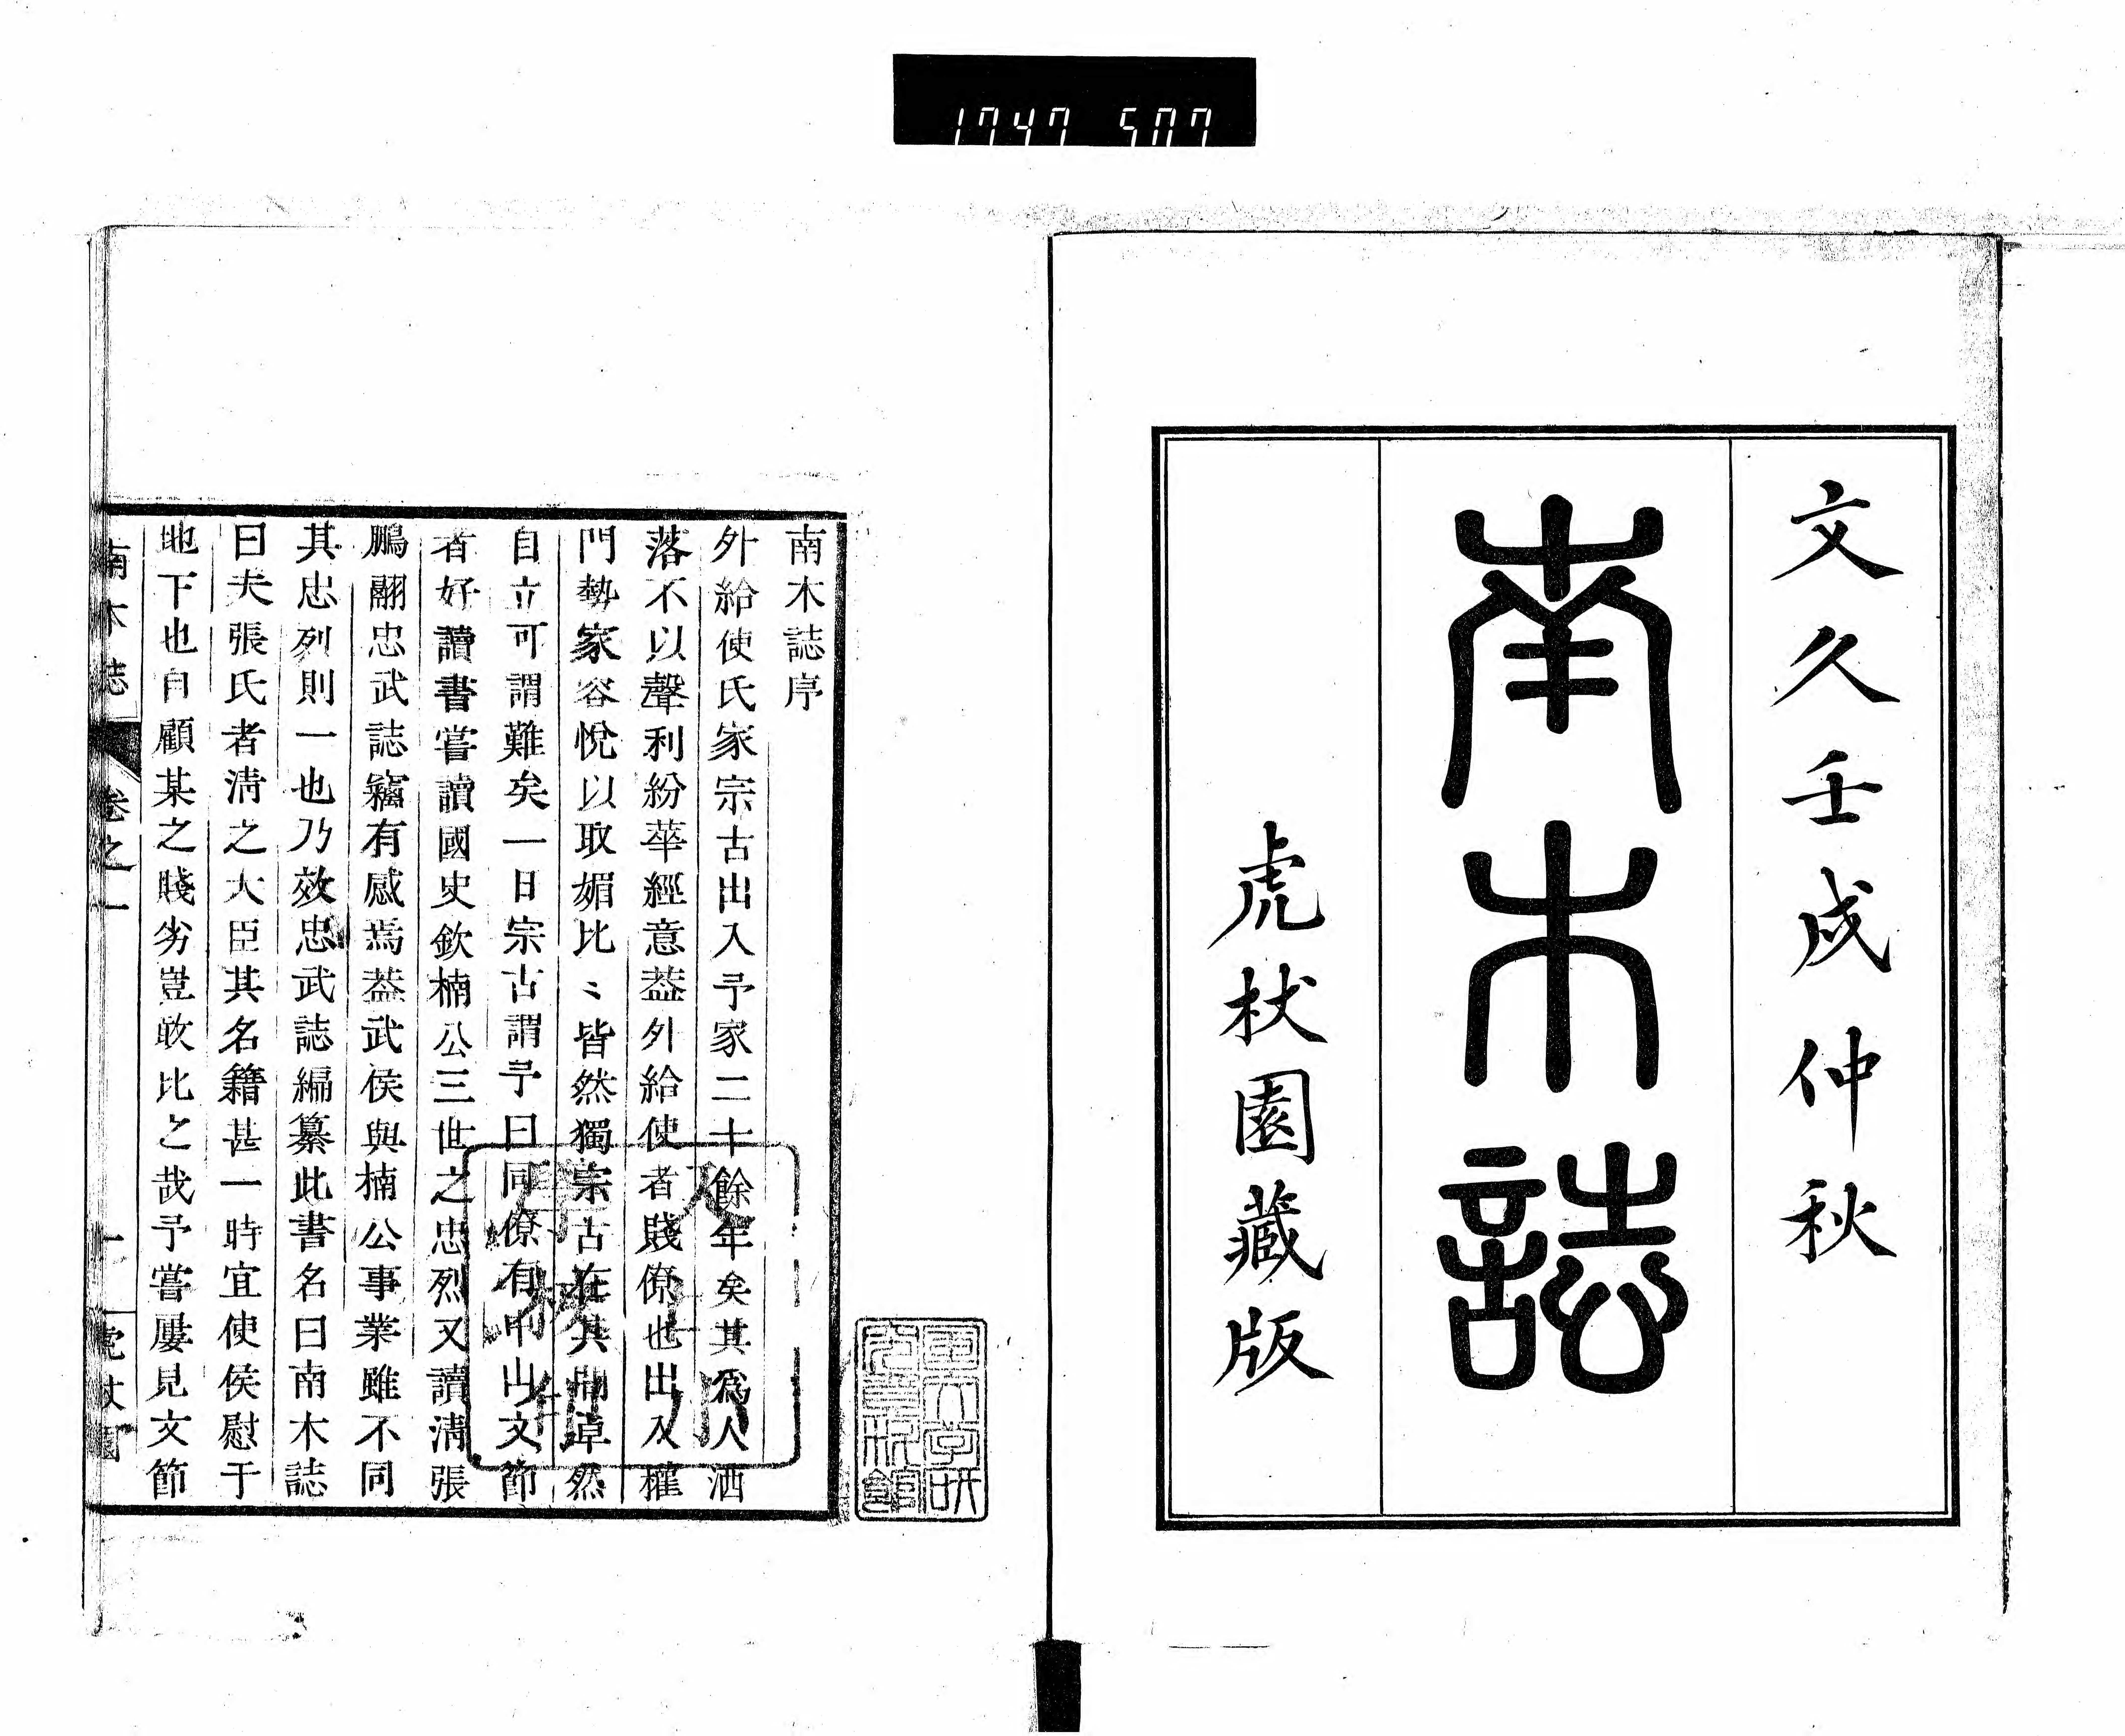 1747 507
文久壬戌仲秋
南木誌
虎杖園藏版
南木誌序
外給使氏家宗古出入予家二十餘年矣其爲人洒
落不以聲利紛華經意葢外給使者賤僚也出入權
門勢家容悅以取媚比〻皆然獨宗古在其間卓然
自立可謂難矣一日宗古謂予曰同僚有中山文節
者好讀書嘗讀國史欽楠公三世之忠烈又讀淸張
鵬翮忠武誌竊有感焉葢武侯與楠公事業雖不同
其忠列則一也乃效忠武誌編纂此書名曰南木誌
曰夫張氏者淸之大臣其名籍甚一時宜使侯慰于
地下也自顧某之賤劣豈敢比之哉予嘗屢見文節
南木誌 卷之一 一 虎杖園